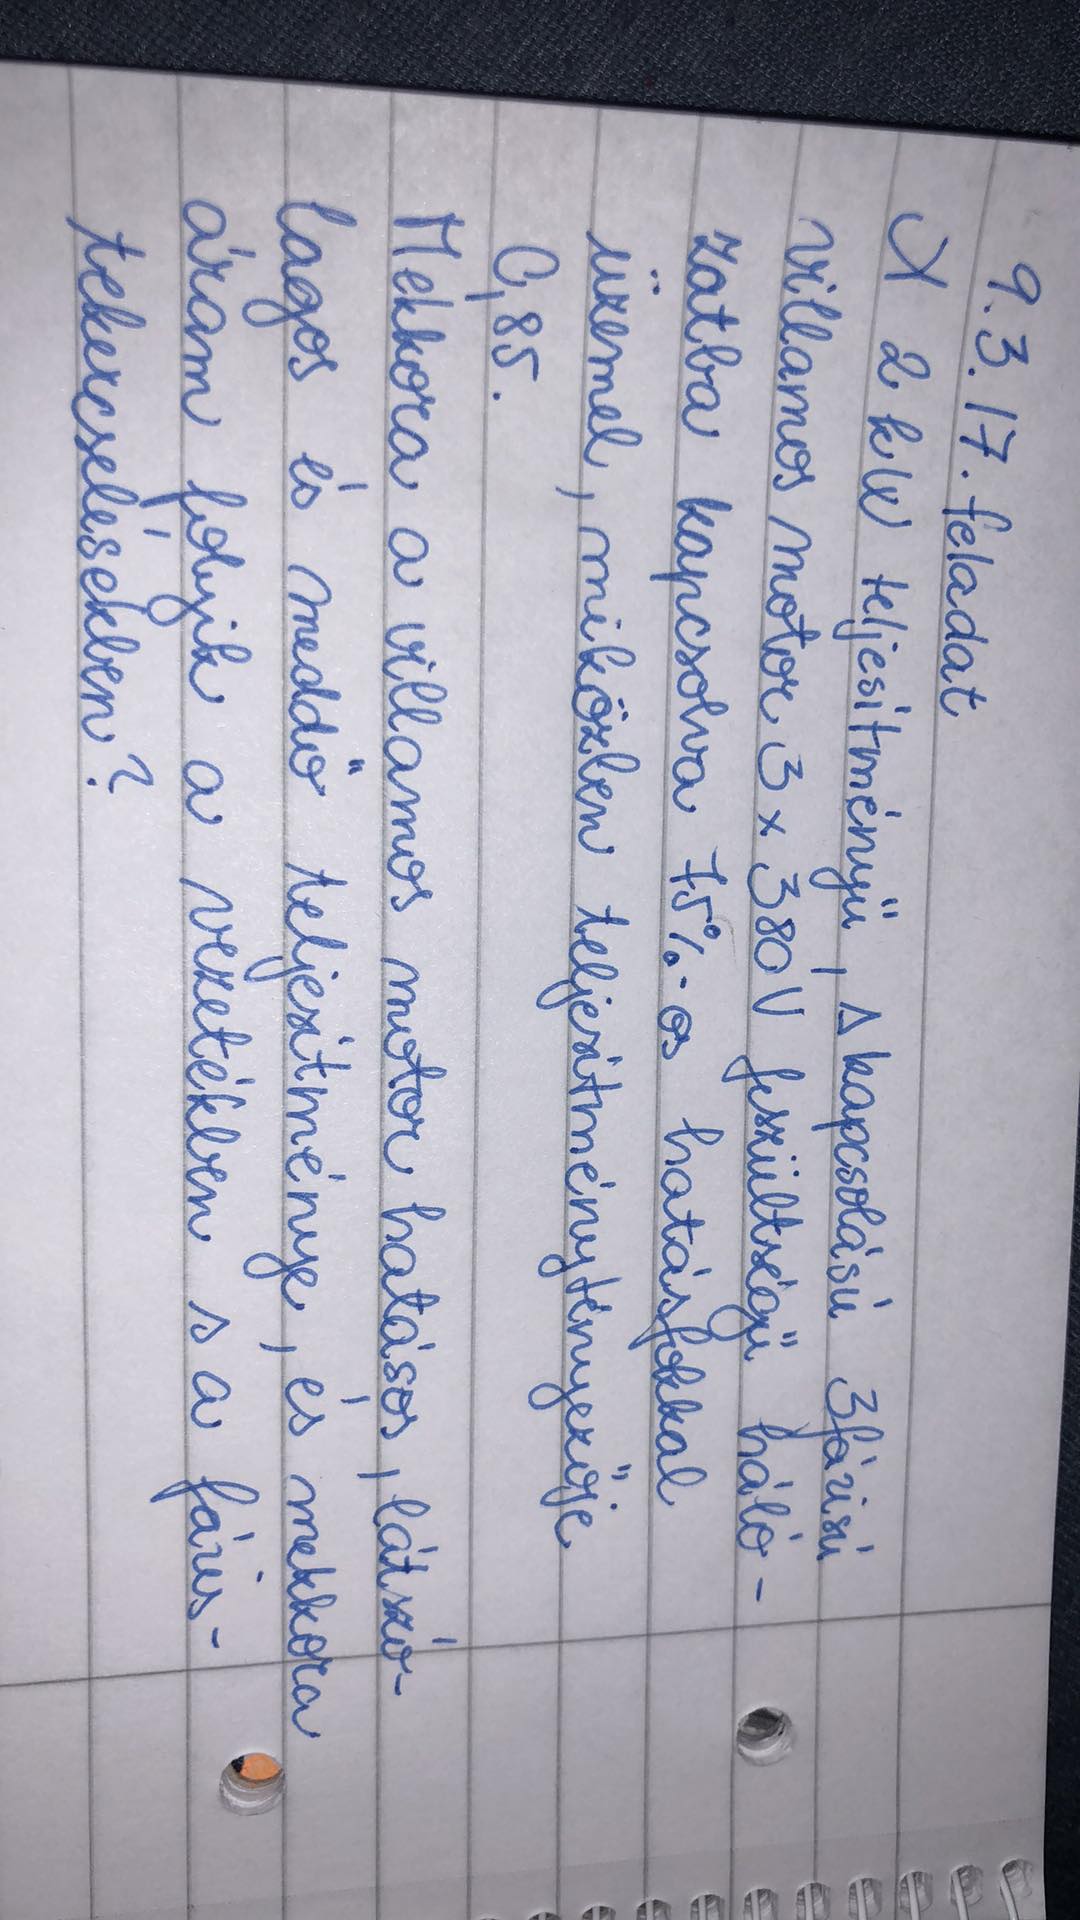 9.3.17. feladat
A 2 kW teljesítményű, Δ kapcsolású 3fázisú
villamos motor 3 x 380V feszültségű háló-
zatba kapcsolva 75%-os hatásfokkal
üzemel, miközben teljesítménytényezője
0,85.
Mekkora a villamos motor hatásos, látszó-
lagos és meddő teljesítménye, és mekkora
áram folyik a vezetékben s a fázis-
tekercselésekben?